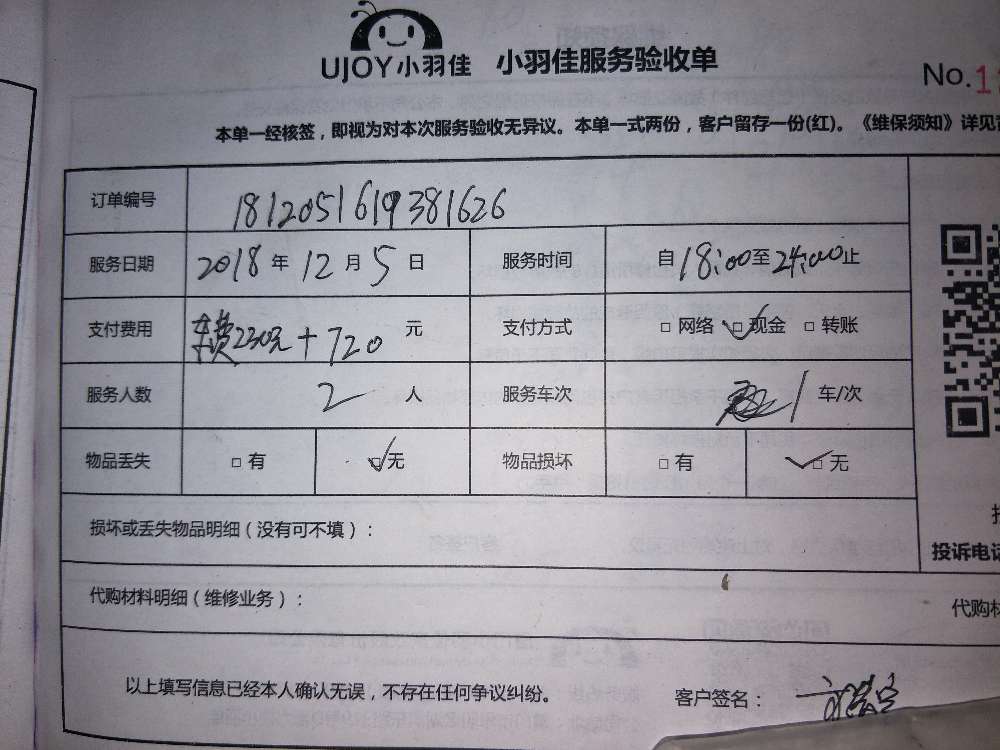 UJOY小羽佳 小羽佳服务验收单
No.1
本单一经核签，即视为对本次服务验收无异议。本单一式两份，客户留存一份(红)。《维保须知》详见
订单编号 1812051619381626
服务日期 2018 年 12 月 5 日 服务时间 自 18:00 至 24:00 止
支付费用 车费230元+720 元 支付方式 □ 网络 □ 现金 □ 转账
服务人数 2 人 服务车次 1 车/次
物品丢失 □ 有 □ 无 物品损坏 □ 有 □ 无
损坏或丢失物品明细（没有可不填）：
投诉电话
代购材料明细（维修业务）：
代购材
以上填写信息已经本人确认无误，不存在任何争议纠纷。 客户签名：